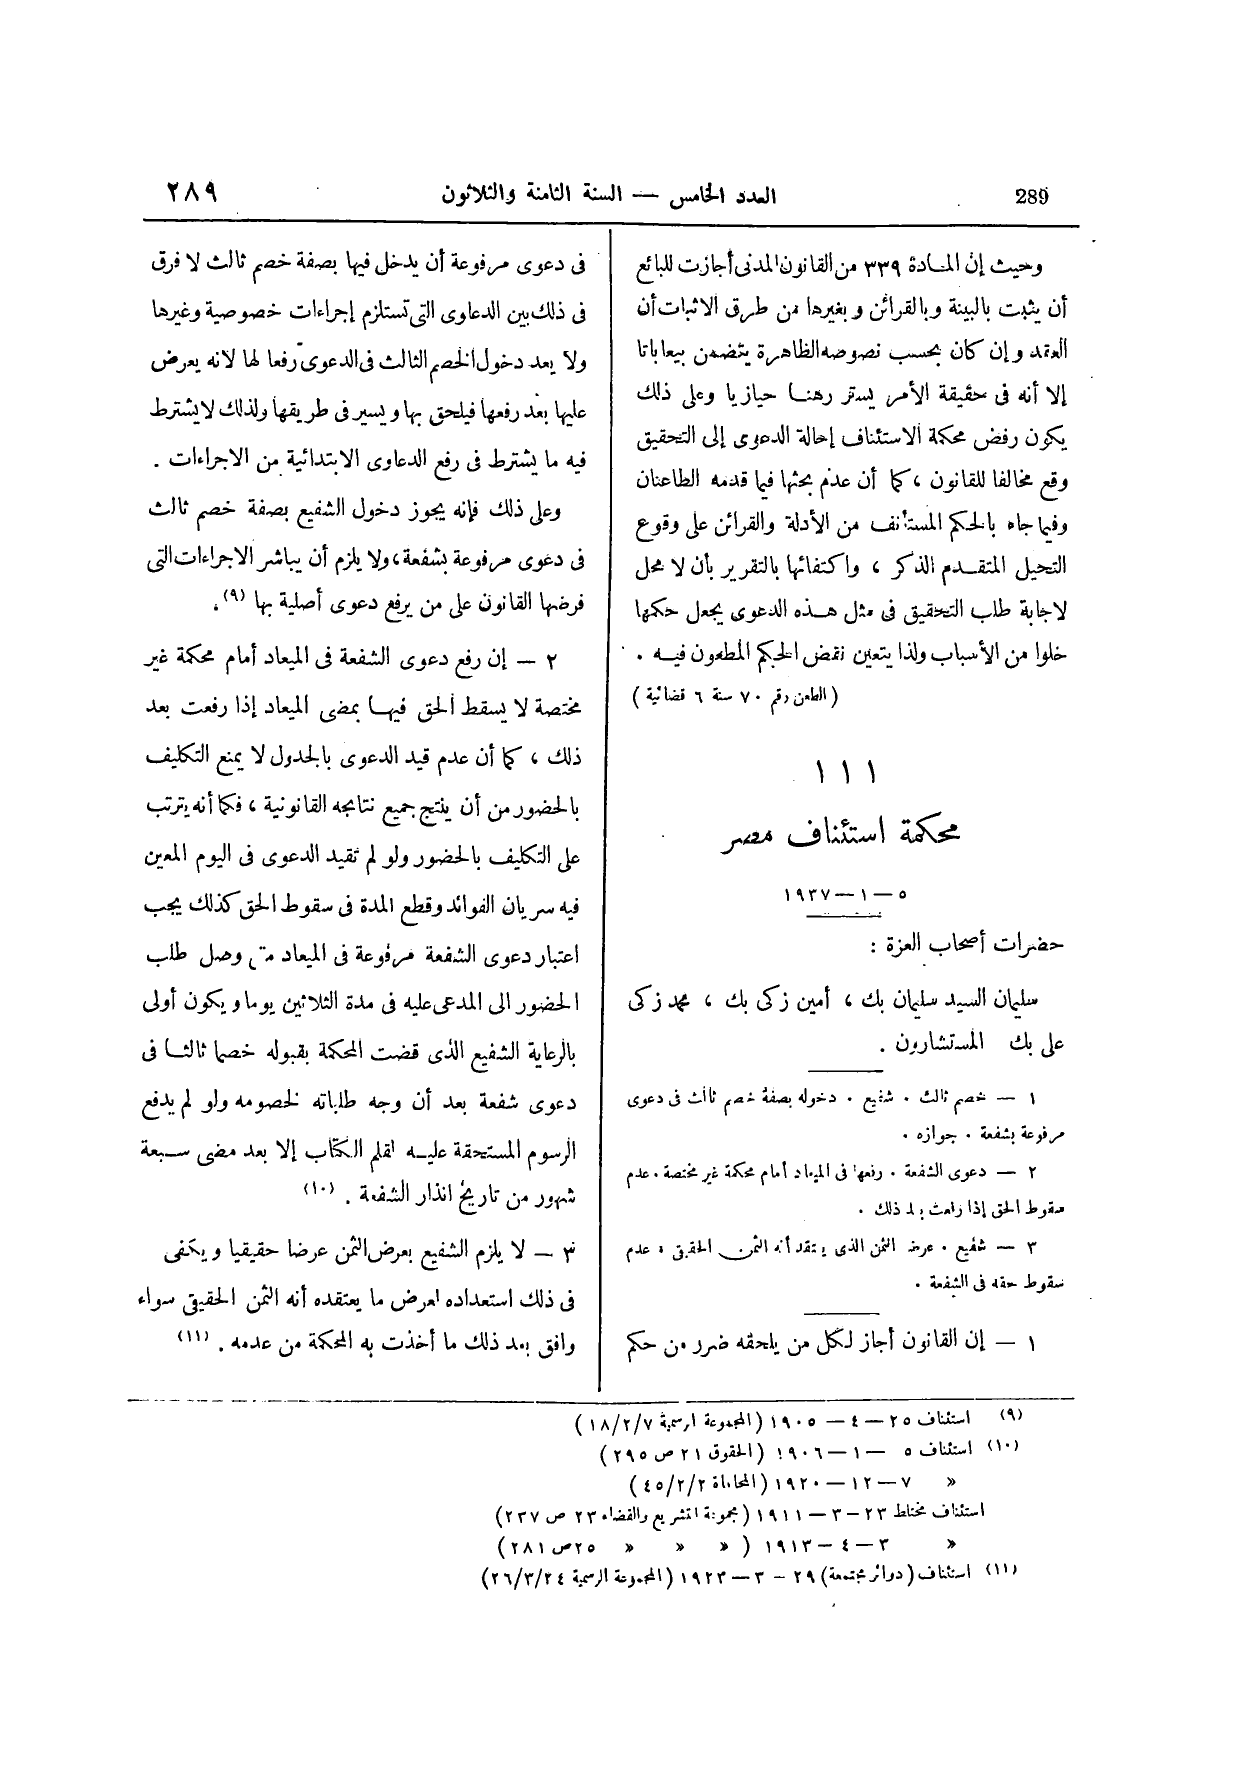 289
العدد الخامس — السنة الثامنة والثلاثون
٢٨٩
وحيث إن المادة ٣٣٩ من القانون المدنى أجازت للبائع
أن يثبت بالبينة وبالقرائن وبغيرها من طرق الاثبات أن
العقد وإن كان بحسب نصوصه الظاهرة يتضمن بيعا باتا
إلا أنه فى حقيقة الأمر يستر رهنا حيازيا وعلى ذلك
يكون رفض محكمة الاستئناف إحالة الدعوى إلى التحقيق
وقع مخالفا للقانون ، كما أن عدم بحثها فيما قدمه الطاعنان
وفيما جاء بالحكم المستأنف من الأدلة والقرائن على وقوع
التحيل المتقدم الذكر ، واكتفائها بالتقرير بأن لا محل
لاجابة طلب التحقيق فى مثل هذه الدعوى يجعل حكمها
خلوا من الأسباب ولذا يتعين نقض الحكم المطعون فيه .
( الطعن رقم ٧٠ سنة ٦ قضائية )
١١١
محكمة استئناف مصر
٥ — ١ — ١٩٣٧
حضرات أصحاب العزة :
سليمان السيد سليمان بك ، أمين زكى بك ، محمد زكى
على بك المستشارون .
١ — خصم ثالث . شفيع . دخوله بصفة خصم ثالث فى دعوى
مرفوعة بشفعة . جوازه .
٢ — دعوى الشفعة . رفعها فى الميعاد أمام محكمة غير مختصة . عدم
سقوط الحق إذا رفعت بعد ذلك .
٣ — شفيع . عرض الثمن الذى يعتقد أنه الثمن الحقيقى . عدم
سقوط حقه فى الشفعة .
١ — إن القانون أجاز لكل من يلحقه ضرر من حكم
فى دعوى مرفوعة أن يدخل فيها بصفة خصم ثالث لا فرق
فى ذلك بين الدعاوى التى تستلزم إجراءات خصوصية وغيرها
ولا يعد دخول الخصم الثالث فى الدعوى رفعا لها لانه يعرض
عليها بعد رفعها فيلحق بها ويسير فى طريقها ولذلك لا يشترط
فيه ما يشترط فى رفع الدعاوى الابتدائية من الاجراءات .
وعلى ذلك فإنه يجوز دخول الشفيع بصفة خصم ثالث
فى دعوى مرفوعة بشفعة ، ولا يلزم أن يباشر الاجراءات التى
فرضها القانون على من يرفع دعوى أصلية بها (٩) .
٢ — إن رفع دعوى الشفعة فى الميعاد أمام محكمة غير
مختصة لا يسقط الحق فيها بمضى الميعاد إذا رفعت بعد
ذلك ، كما أن عدم قيد الدعوى بالجدول لا يمنع التكليف
بالحضور من أن ينتج جميع نتايجه القانونية ، فكما أنه يترتب
على التكليف بالحضور ولو لم تقيد الدعوى فى اليوم المعين
فيه سريان الفوائد وقطع المدة فى سقوط الحق كذلك يجب
اعتبار دعوى الشفعة مرفوعة فى الميعاد متى وصل طلب
الحضور الى المدعى عليه فى مدة الثلاثين يوما ويكون أولى
بالرعاية الشفيع الذى قضت المحكمة بقبوله خصما ثالثا فى
دعوى شفعة بعد أن وجه طلباته لخصومه ولو لم يدفع
الرسوم المستحقة عليه لقلم الكتاب إلا بعد مضى سبعة
شهور من تاريخ انذار الشفعة . (١٠)
٣ — لا يلزم الشفيع بعرض الثمن عرضا حقيقيا ويكفى
فى ذلك استعداده لعرض ما يعتقده أنه الثمن الحقيقى سواء
وافق بعد ذلك ما أخذت به المحكمة من عدمه . (١١)
(٩) استئناف ٢٥ — ٤ — ١٩٠٥ (المجموعة الرسمية ١٨/٢/٧)
(١٠) استئناف ٥ — ١ — ١٩٠٦ (الحقوق ٢١ ص ٢٩٥)
« ٧ — ١٢ — ١٩٢٠ (المحاماة ٤٥/٢/٢)
استئناف مختلط ٢٣ — ٣ — ١٩١١ (مجموعة التشريع والقضاء ٢٣ ص ٢٣٧)
« ٣ — ٤ — ١٩١٣ ( « « « ٢٥ ص ٢٨١)
(١١) استئناف (دوائر مجتمعة) ٢٩ — ٣ — ١٩٢٣ (المجموعة الرسمية ٢٦/٣/٢٤)